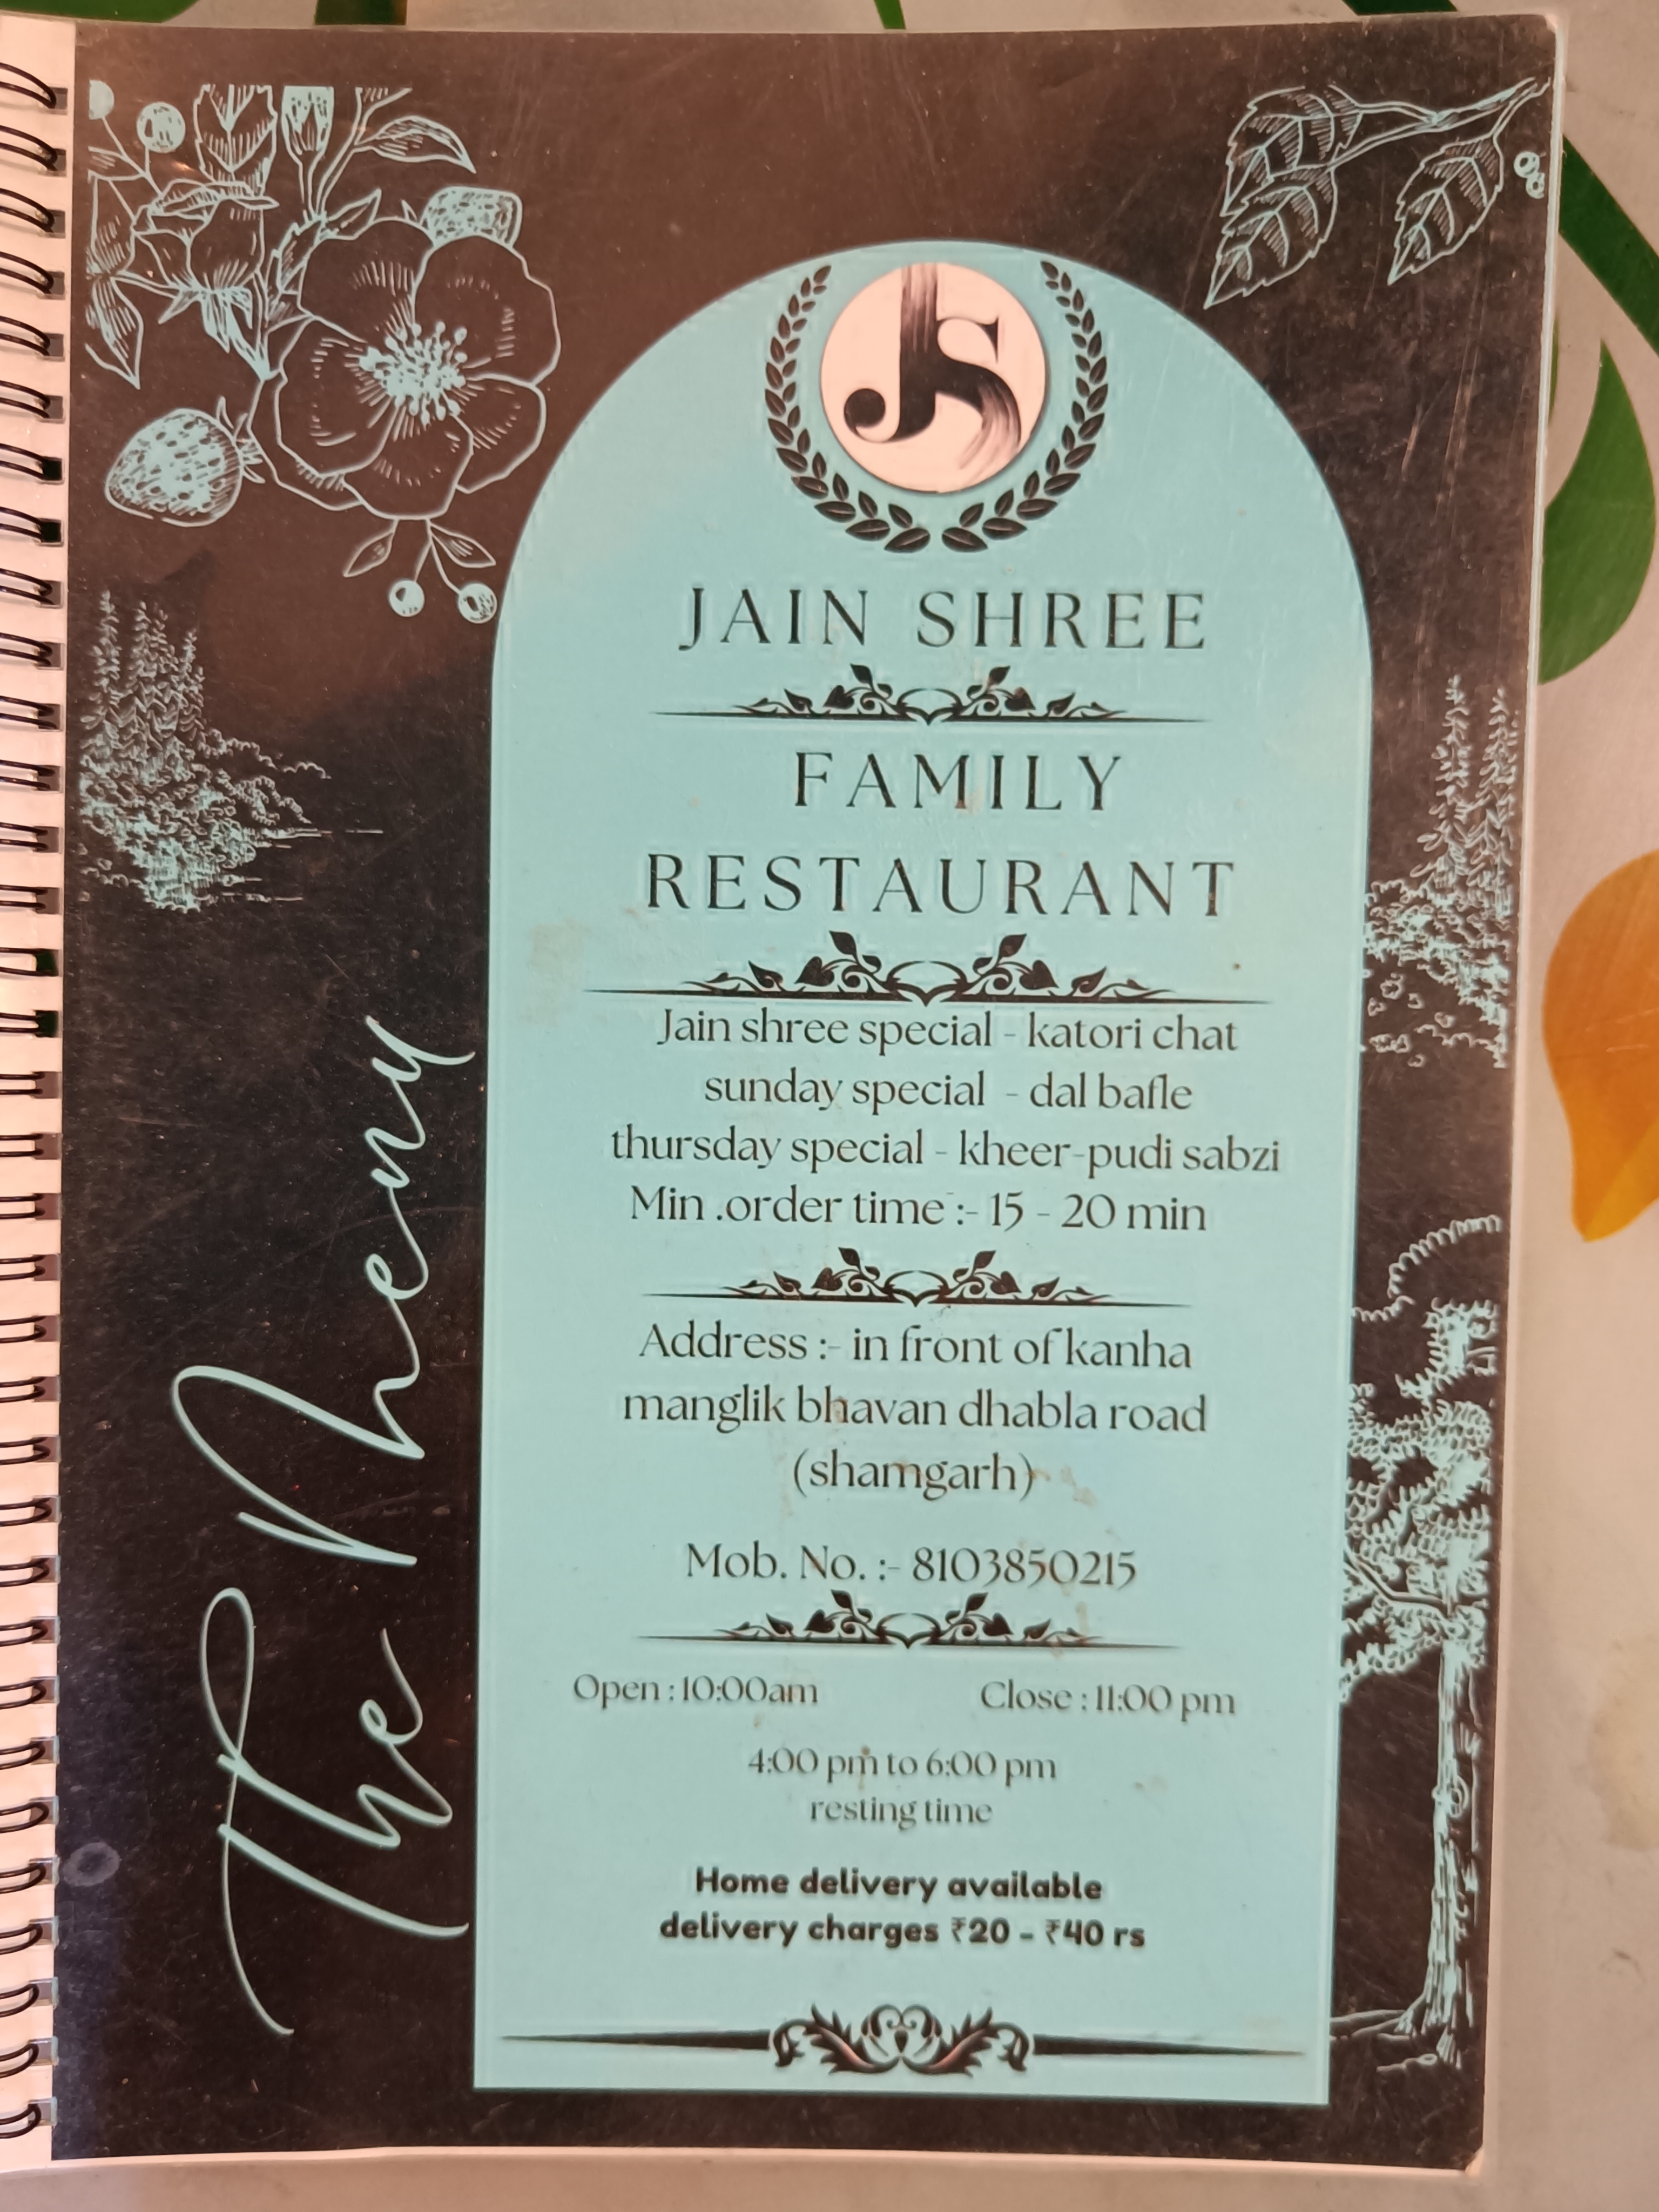 JS
JAIN SHREE
FAMILY
RESTAURANT
Jain shree special - katori chat
sunday special - dal bafle
thursday special - kheer-pudi sabzi
Min .order time :- 15 - 20 min
Address :- in front of kanha
manglik bhavan dhabla road
(shamgarh)
Mob. No. :- 8103850215
Open : 10:00am Close : 11:00 pm
4:00 pm to 6:00 pm
resting time
Home delivery available
delivery charges ₹20 - ₹40 rs
The Menu